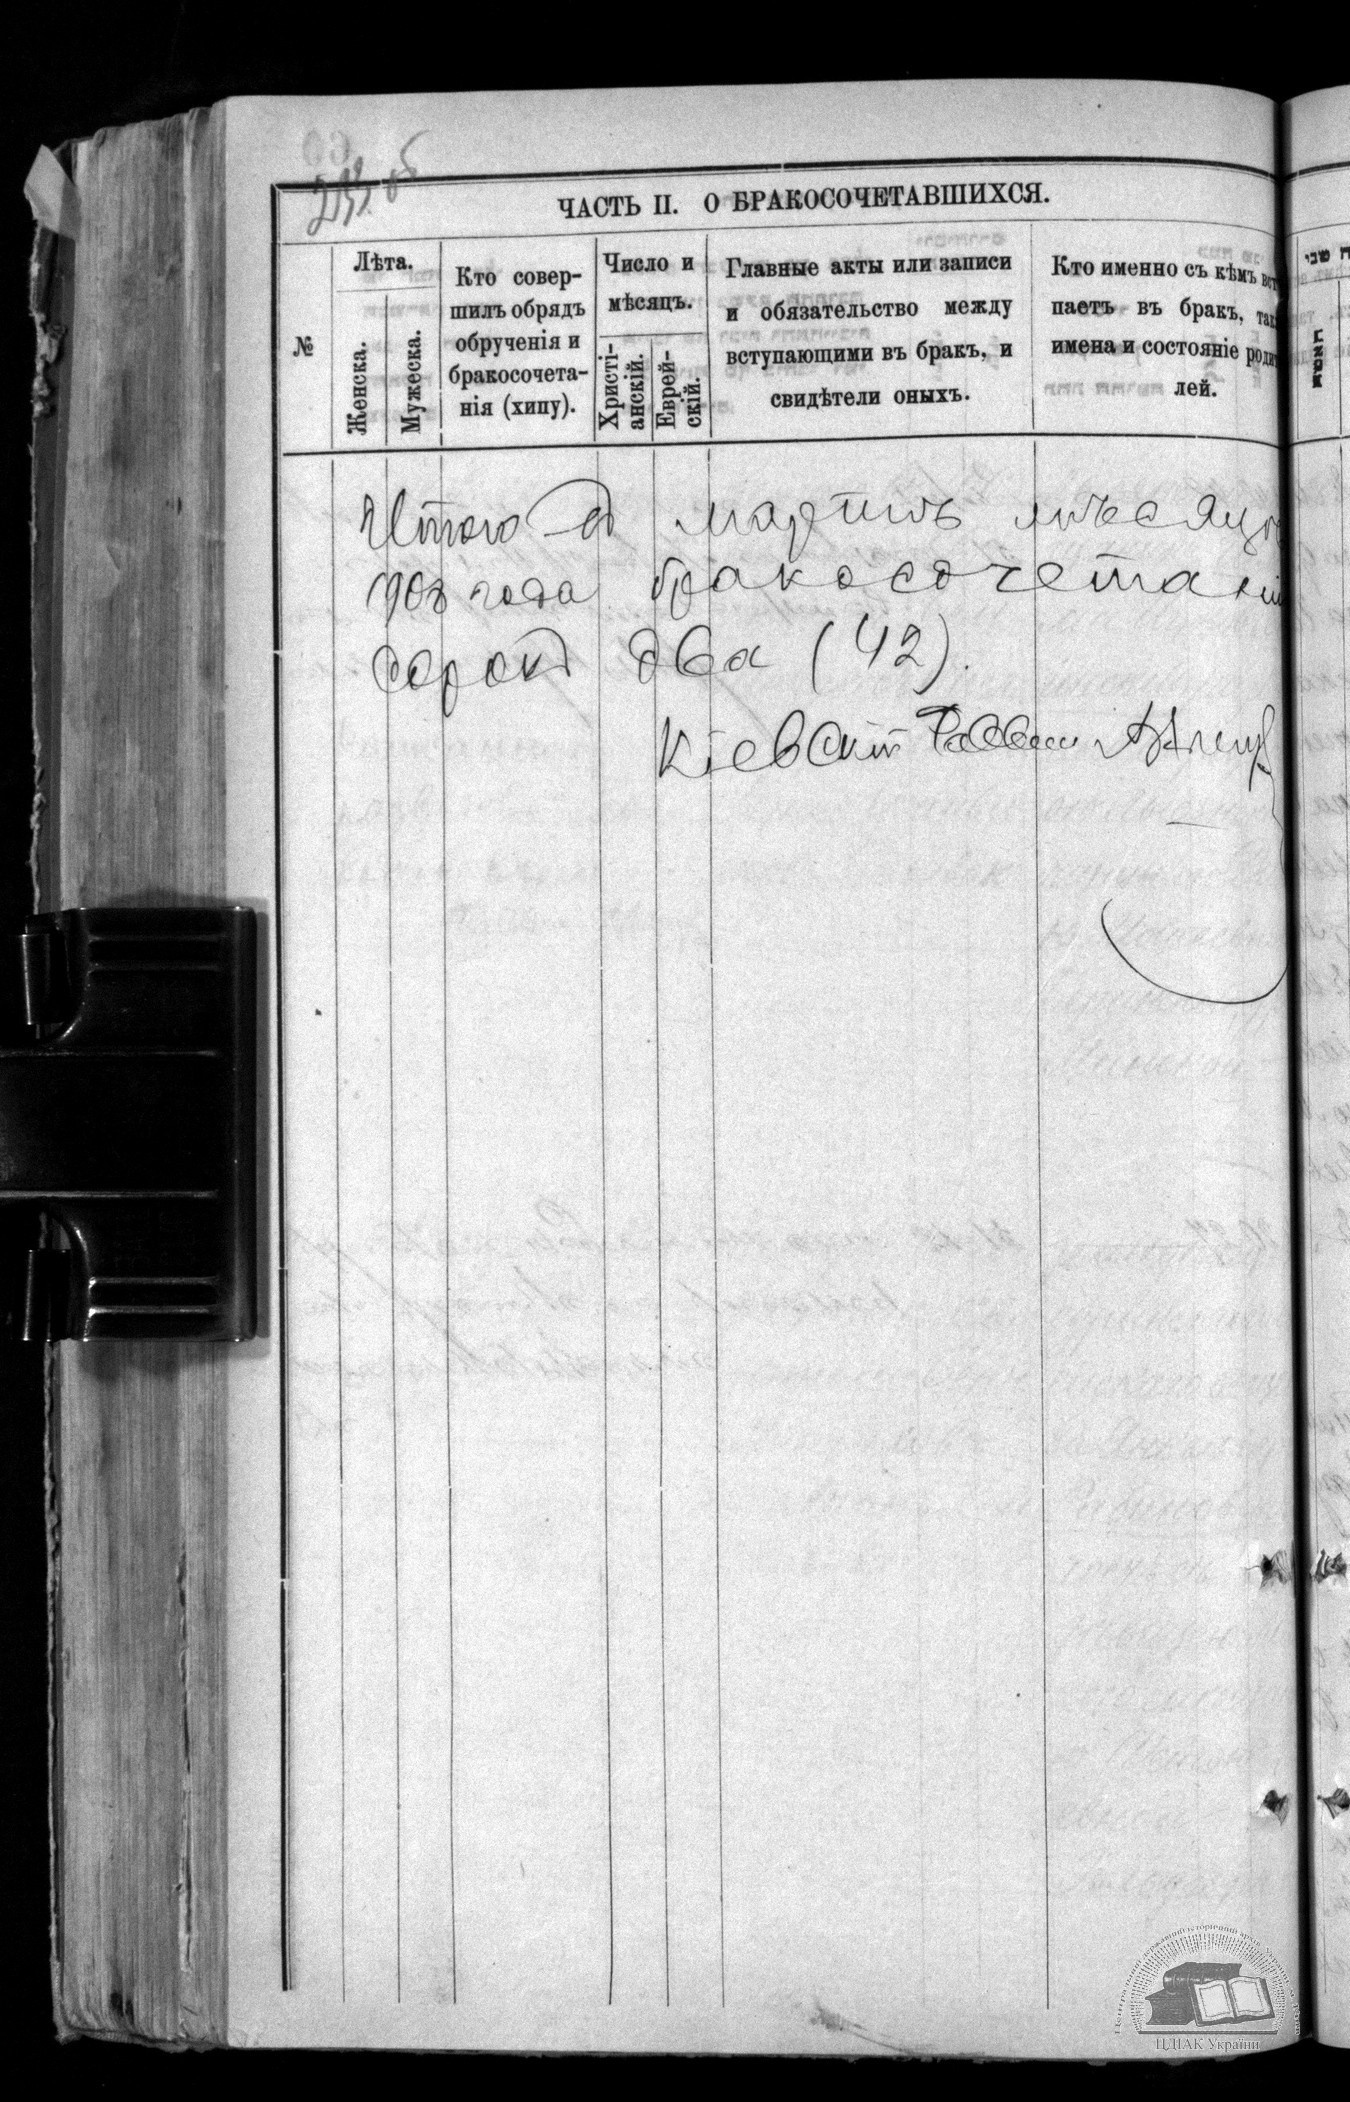 ЧАСТЬ II. О БРАКОСОЧЕТАВШИХСЯ.
№
Лѣта.
Женска.
Мужеска.
Кто совер-
шилъ обрядъ
обрученія и
бракосочета-
нія (хипу).
Число и
мѣсяцъ.
Христі-
анскій.
Еврей-
скій.
Главные акты или записи
и обязательство между
вступающими въ бракъ, и
свидѣтели оныхъ.
Кто именно съ кѣмъ вст
паетъ въ бракъ, так
имена и состояніе роди
лей.
Итого въ мартѣ мѣсяцѣ
года бракосочетаній
сорокъ два (42).
Кіевскій Раввинъ
ЦДІАК України